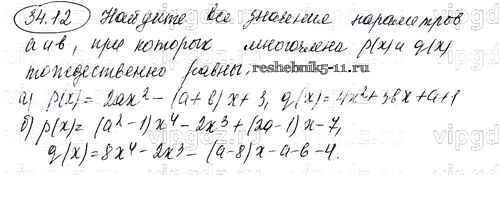 34.12 Найдите все значение параметров
а и в, при которых многочлена p(x) и q(x)
тождественно равны.
reshebnik5-11.ru
а) p(x) = 2ax² - (a+b)x + 3, q(x) = 4x² + 3bx + a + 1
б) p(x) = (a² - 1)x⁴ - 2x³ + (2a - 1)x - 7,
q(x) = 8x⁴ - 2x³ - (a - 8)x - a - b - 4.